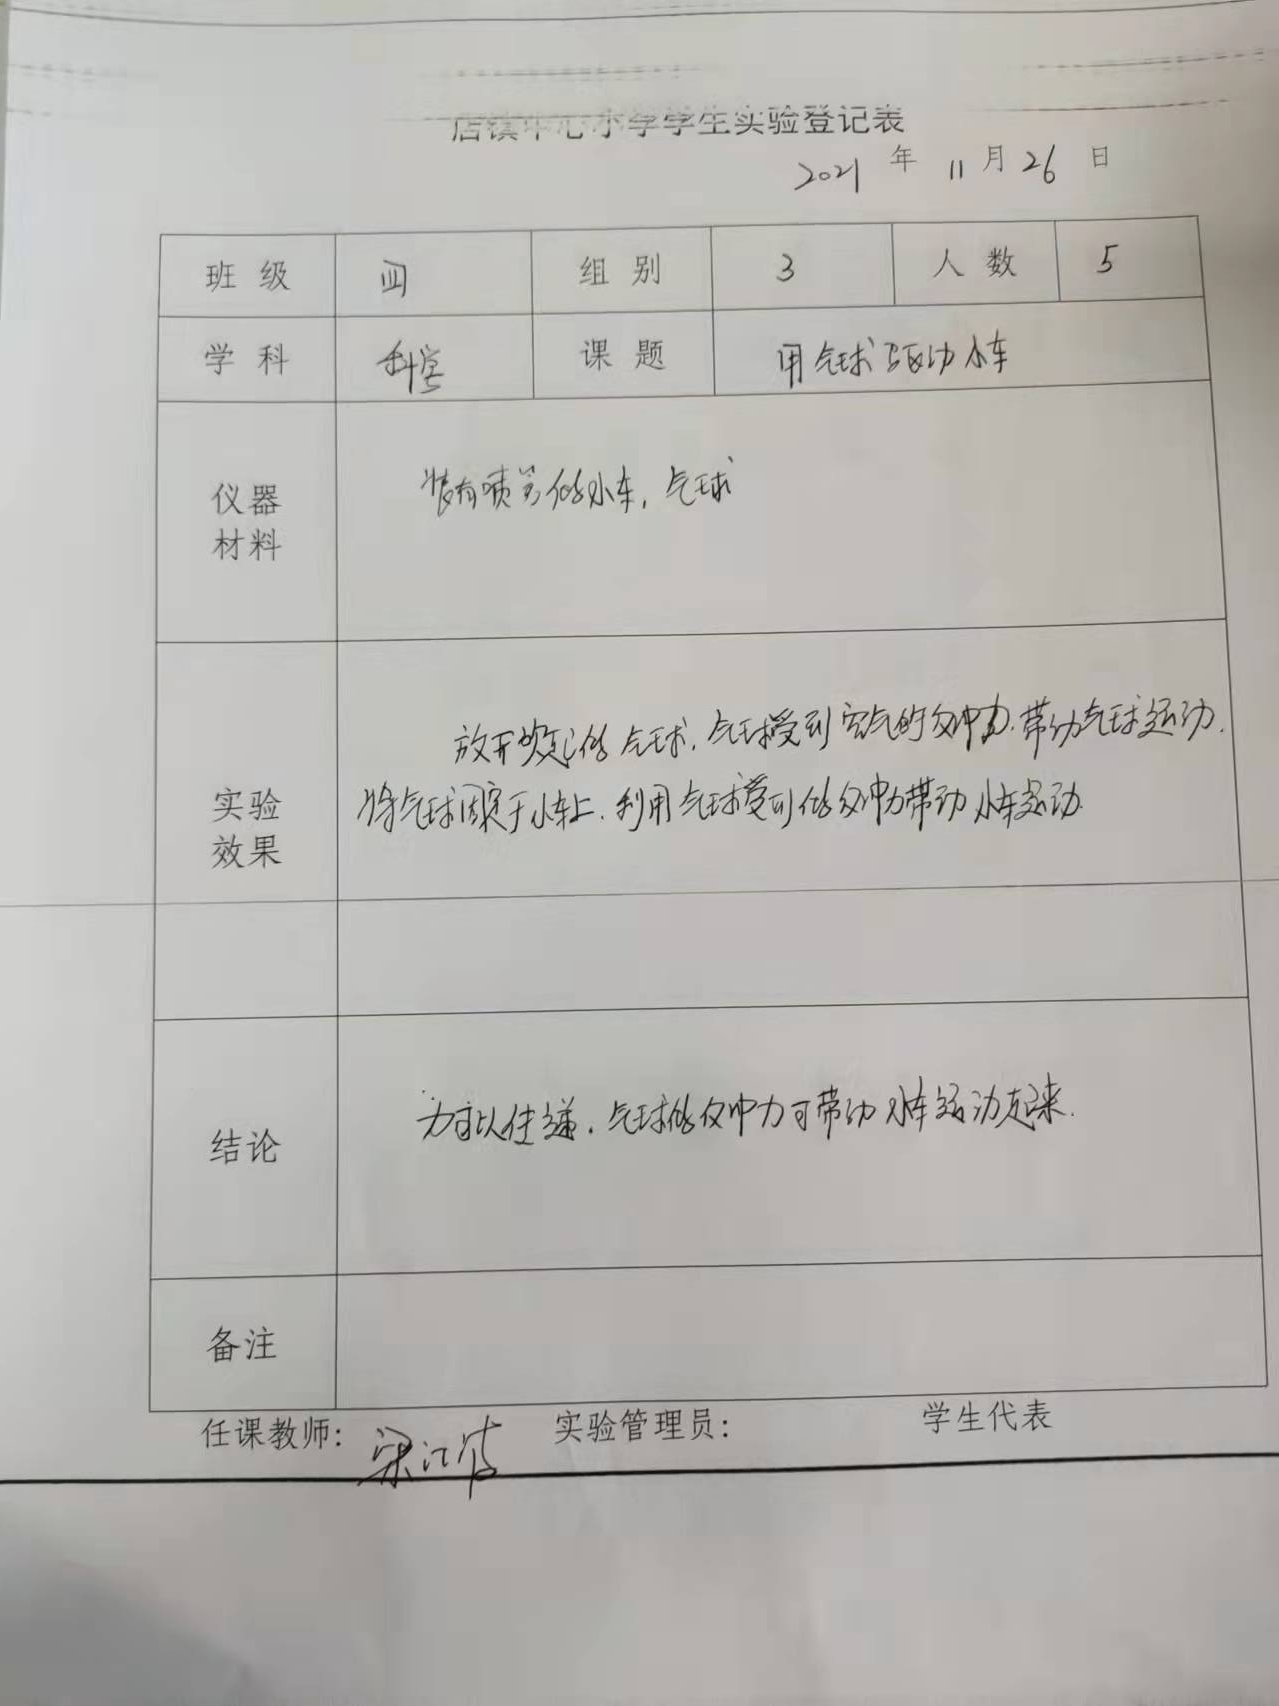 店镇中心小学学生实验登记表
2021 年 11 月 26 日
班 级 四 组 别 3 人 数 5
学 科 科学 课 题 用气球驱动小车
仪器
材料
装有喷嘴的小车，气球
放开吹起的气球，气球受到空气的反冲力，带动气球运动，
实验
效果
将气球固定于小车上，利用气球受到的反冲力带动小车运动
结论
力可以传递，气球的反冲力可带动小车运动起来.
备注
任课教师: 实验管理员: 学生代表